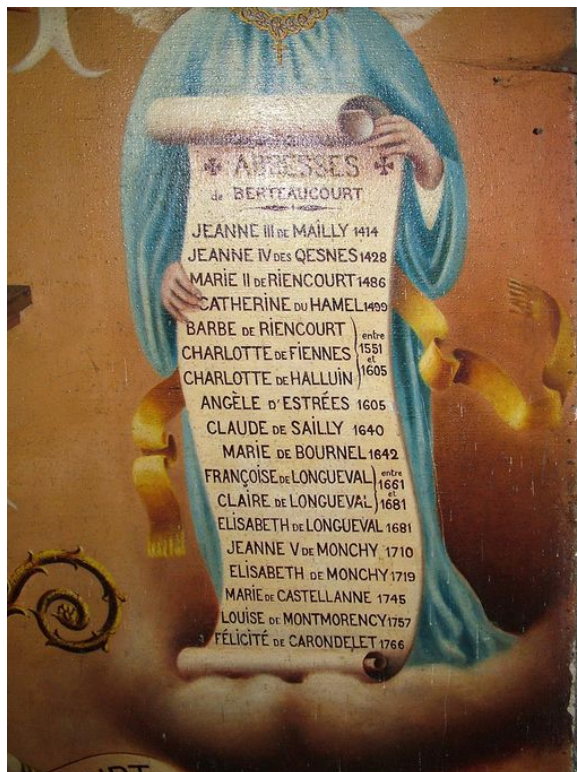 ✠ ABBESSES ✠
de BERTEAUCOURT
JEANNE III DE MAILLY 1414
JEANNE IV DES QESNES 1428
MARIE II DE RIENCOURT 1486
CATHERINE DU HAMEL 1499
BARBE DE RIENCOURT
CHARLOTTE DE FIENNES
CHARLOTTE DE HALLUIN
entre
1551
et
1605
ANGÈLE D'ESTRÉES 1605
CLAUDE DE SAILLY 1640
MARIE DE BOURNEL 1642
FRANÇOISE DE LONGUEVAL
CLAIRE DE LONGUEVAL
entre
1661
et
1681
ELISABETH DE LONGUEVAL 1681
JEANNE V DE MONCHY 1710
ELISABETH DE MONCHY 1719
MARIE DE CASTELLANNE 1745
LOUISE DE MONTMORENCY 1757
FÉLICITÉ DE CARONDELET 1766